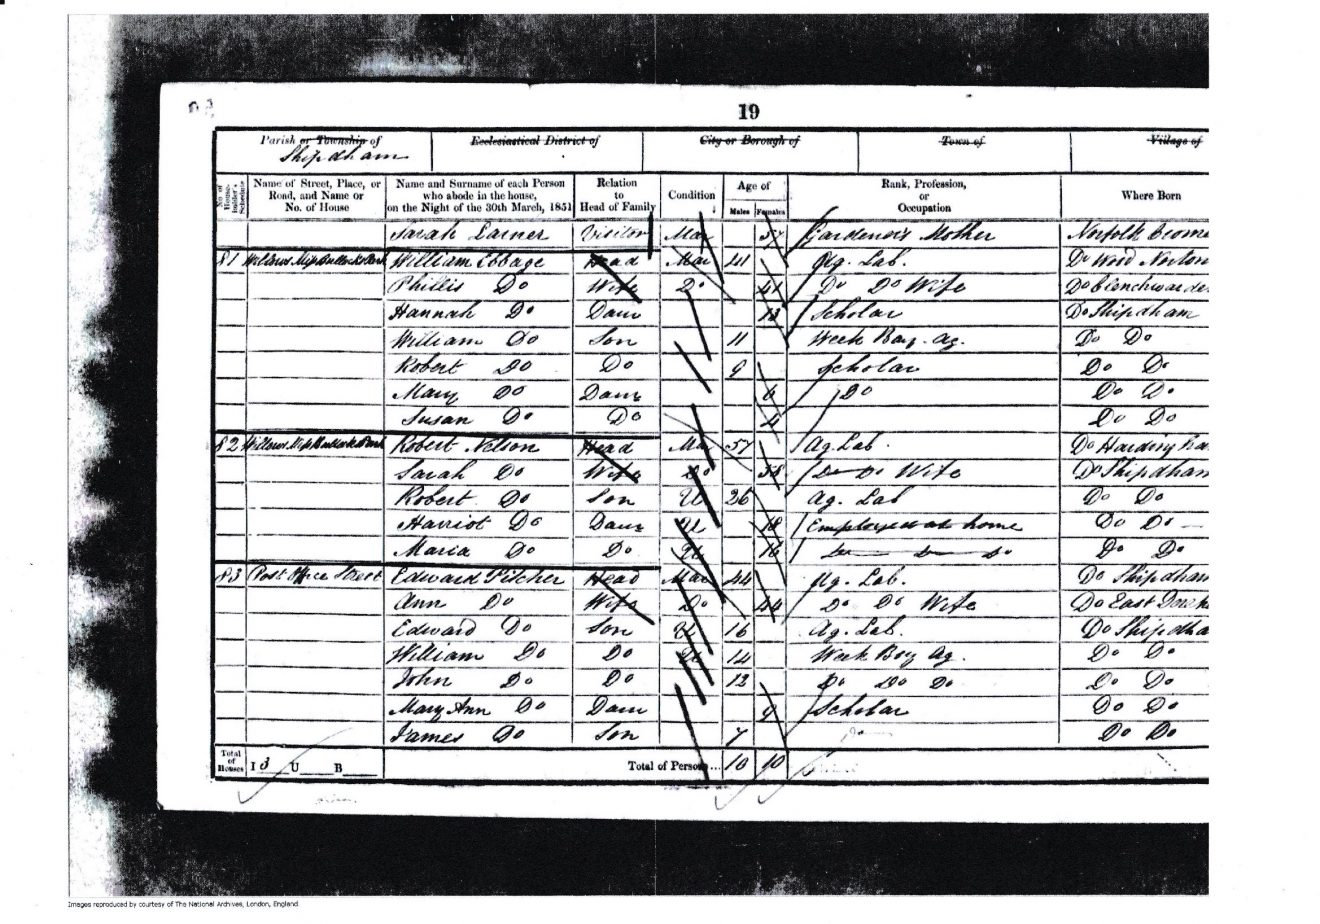 19
Parish or Township of Ecclesiastical District of City or Borough of Town of Village of
Shipdham
No. of House-holder's Schedule Name of Street, Place, or Road, and Name or No. of House Name and Surname of each Person who abode in the house, on the Night of the 30th March, 1851 Relation to Head of Family Condition Age of Males Females Rank, Profession, or Occupation Where Born
Sarah Larner Visitor Mar 57 Gardener's Mother Norfolk
81 William Ebbage Head Mar 41 Ag. Lab. Do Wood Norton
Phillis Do Wife Do 41 Do Do Wife Do
Hannah Do Daur 13 Scholar Do Shipdham
William Do Son 11 Week Boy. Ag. Do Do
Robert Do Do 9 Scholar Do Do
Mary Do Daur 6 Do Do Do
Susan Do Do 4 Do Do
82 Robert Nelson Head Mar 57 Ag. Lab. Do Harding
Sarah Do Wife Do 58 Do Do Wife Do Shipdham
Robert Do Son U 26 Ag. Lab Do Do
Harriot Do Daur U 18 Employed at home Do Do
Maria Do Do U 16 Do Do Do Do Do
83 Post Office Street Edward Pitcher Head Mar 44 Ag. Lab. Do Shipdham
Ann Do Wife Do 44 Do Do Wife Do East
Edward Do Son U 16 Ag. Lab. Do Shipdha
William Do Do U 14 Week Boy Ag. Do Do
John Do Do 12 Do Do Do Do Do
Mary Ann Do Daur 9 Scholar Do Do
James Do Son 7 Do Do
Total of Houses I 3 U B Total of Persons... 10 10
Images reproduced by courtesy of The National Archives, London, England.